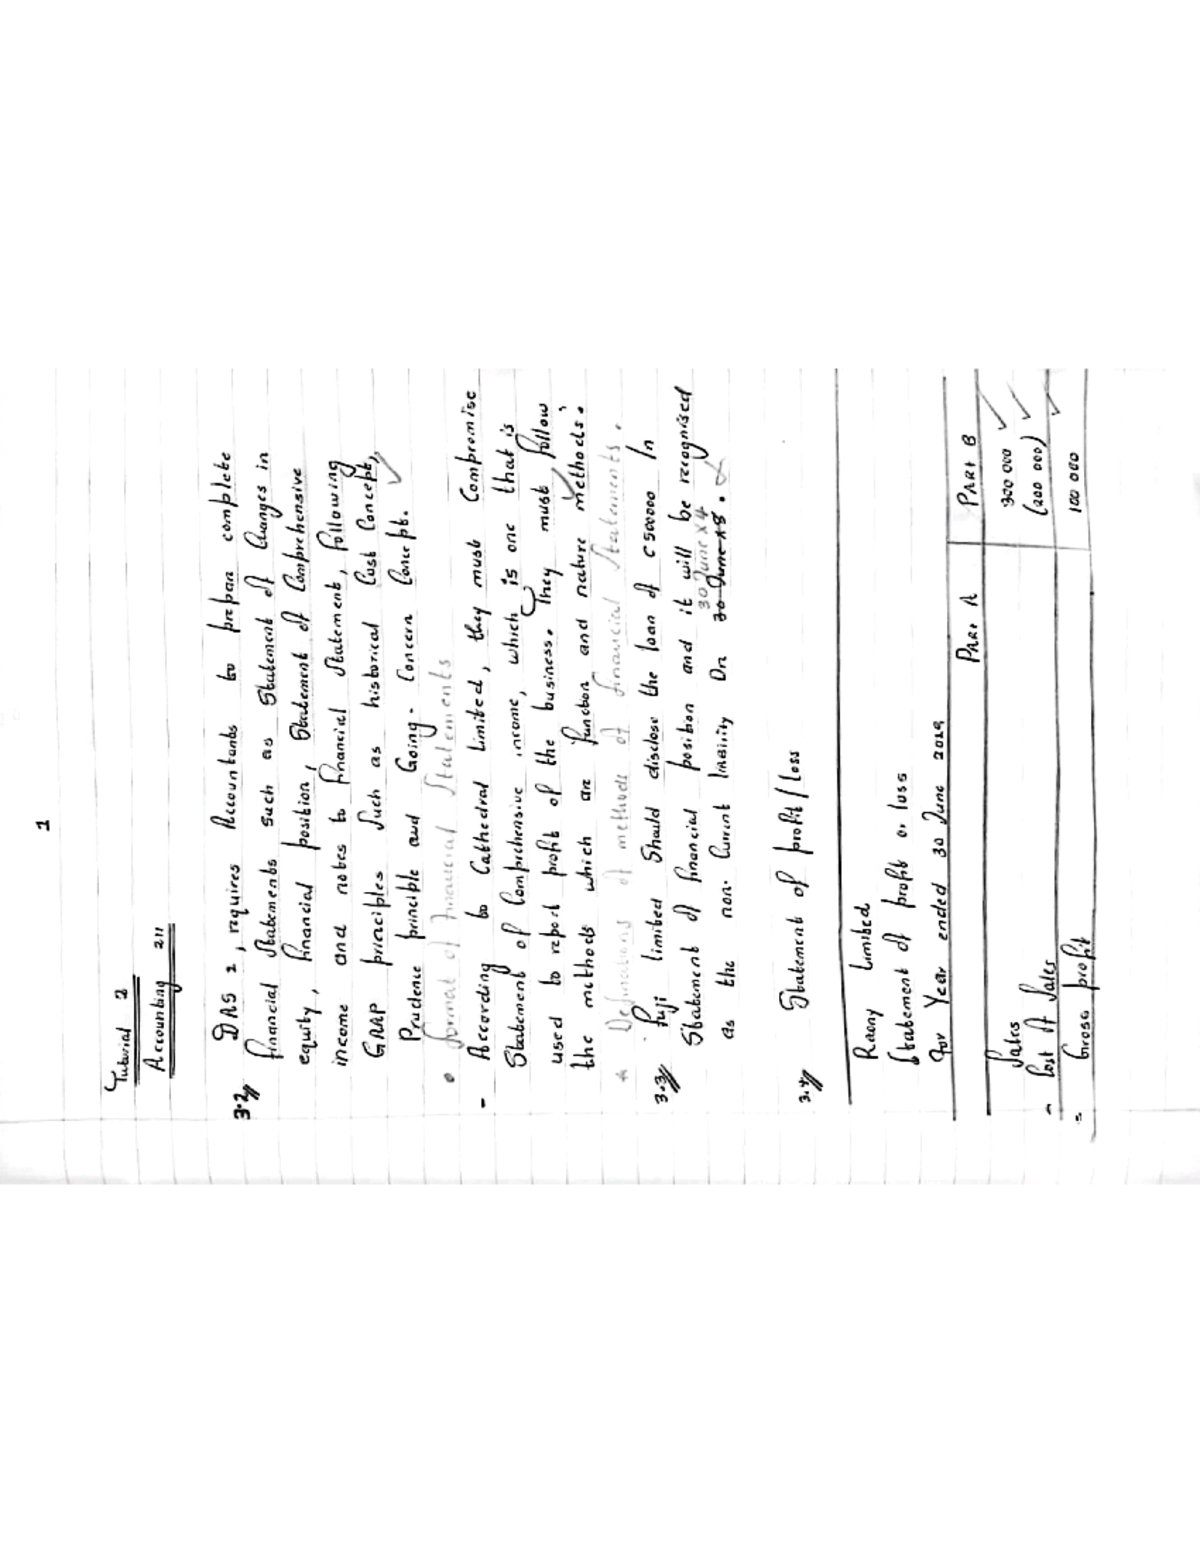 1
Tutorial 2
Accounting 211
3.2// IAS 1, requires Accountants to prepare complete
financial statements such as Statement of Changes in
equity, financial position, Statement of Comprehensive
income and notes to financial statement, following
GAAP principles such as historical Cost Concept,
Prudence principle and Going-Concern Concept.
• format of financial statements
- According to Cathedral Limited, they must Compromise
Statement of Comprehensive income, which is one that is
used to report profit of the business. They must follow
the methods which are function and nature methods.
* Definations of methods of financial statements.
3.3// Fuji limited Should disclose the loan of C500000 in
Statement of financial position and it will be recognised
30 June X4
as the non-Current liability On 30 June X8.
3.4// Statement of profit/Loss
Limited
Statement of profit or loss
for Year ended 30 June 2019
PART A PART B
Sales 300 000
- Cost of Sales (200 000)
= Gross profit 100 000